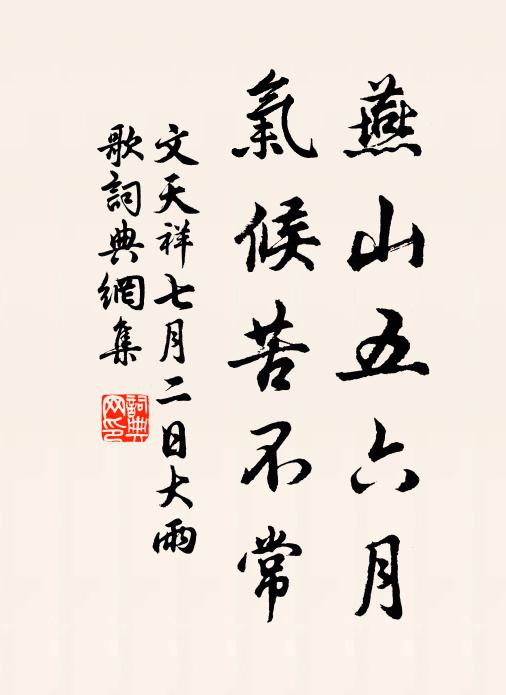 燕山五六月
氣候苦不常
文天祥七月二日大雨
歌詞典網集
詞典
网印